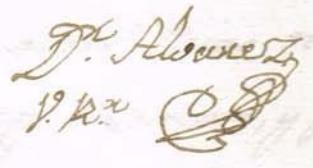 D.r Alvarez
V. R.r